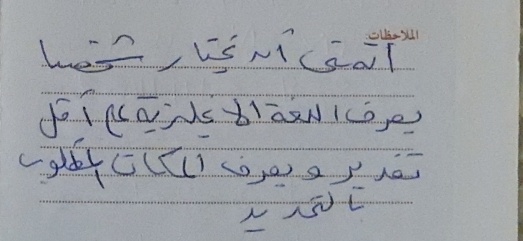 الملاحظات:
أتمنى أن تختار شخصا
يعرف اللغة الانجليزية على أقل
تقدير و يعرف المكان المطلوب
بالتحديد